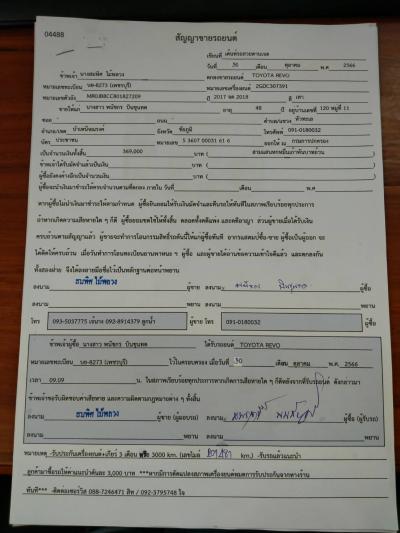 04488
สัญญาขายรถยนต์
เขียนที่ เต็นท์รถสวยตามเจต
วันที่ 30 เดือน ตุลาคม พ.ศ. 2566
ข้าพเจ้า ตกลงขายรถยนต์ TOYOTA REVO
หมายเลขทะเบียน บต-8273 (เพชรบุรี) หมายเลขเครื่องยนต์ 2GDC307391
หมายเลขตัวถัง ปี 2017 จด 2018 สี เทา
ขายให้แก่ นางสาว พนัชกร ปันขุนทด อายุ 48 ปี อยู่บ้านเลขที่ 120 หมู่ที่ 11
ซอย - ถนน ตำบล/แขวง หัวทะเล
อำเภอ/เขต บำเหน็จณรงค์ จังหวัด ชัยภูมิ โทรศัพท์ 091-0180032
บัตร ประชาชน หมายเลข 3 3607 00031 61 6 ออกให้ ณ กรมการปกครอง
เป็นจำนวนเงินทั้งสิ้น 369,000 บาท ( สามแสนหกหมื่นเก้าพันบาทถ้วน )
ข้าพเจ้าได้รับมัดจำแล้วเป็นเงิน บาท ( )
ผู้ซื้อยังคงค้างอีกเป็นจำนวนเงิน บาท ( )
ผู้ซื้อจะนำเงินมาชำระให้ครบจำนวนตามที่ตกลง ภายใน วันที่ เดือน พ.ศ.
หากผู้ซื้อไม่นำเงินมาชำระให้ตามกำหนด ผู้ซื้อยินยอมให้ริบเงินมัดจำและคืนรถให้ทันทีในสภาพเรียบร้อยทุกประการ
ถ้าหากเกิดความเสียหายใด ๆ ก็ดี ผู้ซื้อยอมชดใช้ให้ทั้งสิ้น ตลอดทั้งคดีแพ่ง และคดีอาญา ส่วนผู้ขายเมื่อได้รับเงิน
ครบถ้วนตามสัญญาแล้ว ผู้ขายจะทำการโอนกรรมสิทธิ์รถคันนี้ให้แก่ผู้ซื้อทันที
ทั้งสองฝ่าย จึงได้ลงลายมือชื่อไว้เป็นหลักฐานต่อหน้าพยาน
ลงนาม ผู้ขาย ลงนาม ผู้ซื้อ
ลงนาม พยาน ลงนาม พยาน
โทร 093-5037775 เจ้นาง 092-8914379 ลูกน้ำ ผู้ขาย โทร 091-0180032 ผู้ซื้อ
ข้าพเจ้าผู้ซื้อ นางสาว พนัชกร ปันขุนทด ได้รับรถยนต์ TOYOTA REVO
หมายเลขทะเบียน บต-8273 (เพชรบุรี) ไว้ในครอบครอง เมื่อวันที่ 30 เดือน ตุลาคม พ.ศ. 2566
เวลา 09.09 น. ในสภาพเรียบร้อยทุกประการหากเกิดการเสียหายใด ๆ ก็ดีหลังจากที่รับรถยนต์ ดังกล่าวมา
ข้าพเจ้าจะรับผิดชอบค่าเสียหาย และความผิดตามกฎหมายต่าง ๆ ทั้งสิ้น
ลงนาม ผู้ขาย (ผู้มอบรถ) ลงนาม ผู้ซื้อ (ผู้รับรถ)
ลงนาม พยาน ลงนาม พยาน
หมายเหตุ -รับประกันเครื่องยนต์+เกียร์ 3 เดือน หรือ 3000 km. (เลขไมล์ km.) -รับรถแล้วแนะนำ
ลูกค้ามาซื้อรถให้ค่าแนะนำคันละ 3,000 บาท ***หากมีการดัดแปลงสภาพเครื่องยนต์หมดการรับประกันจากทางร้าน
ทันที*** -ติดต่อเซอร์วิส 088-7246471 สิท / 092-3795748 ใจ